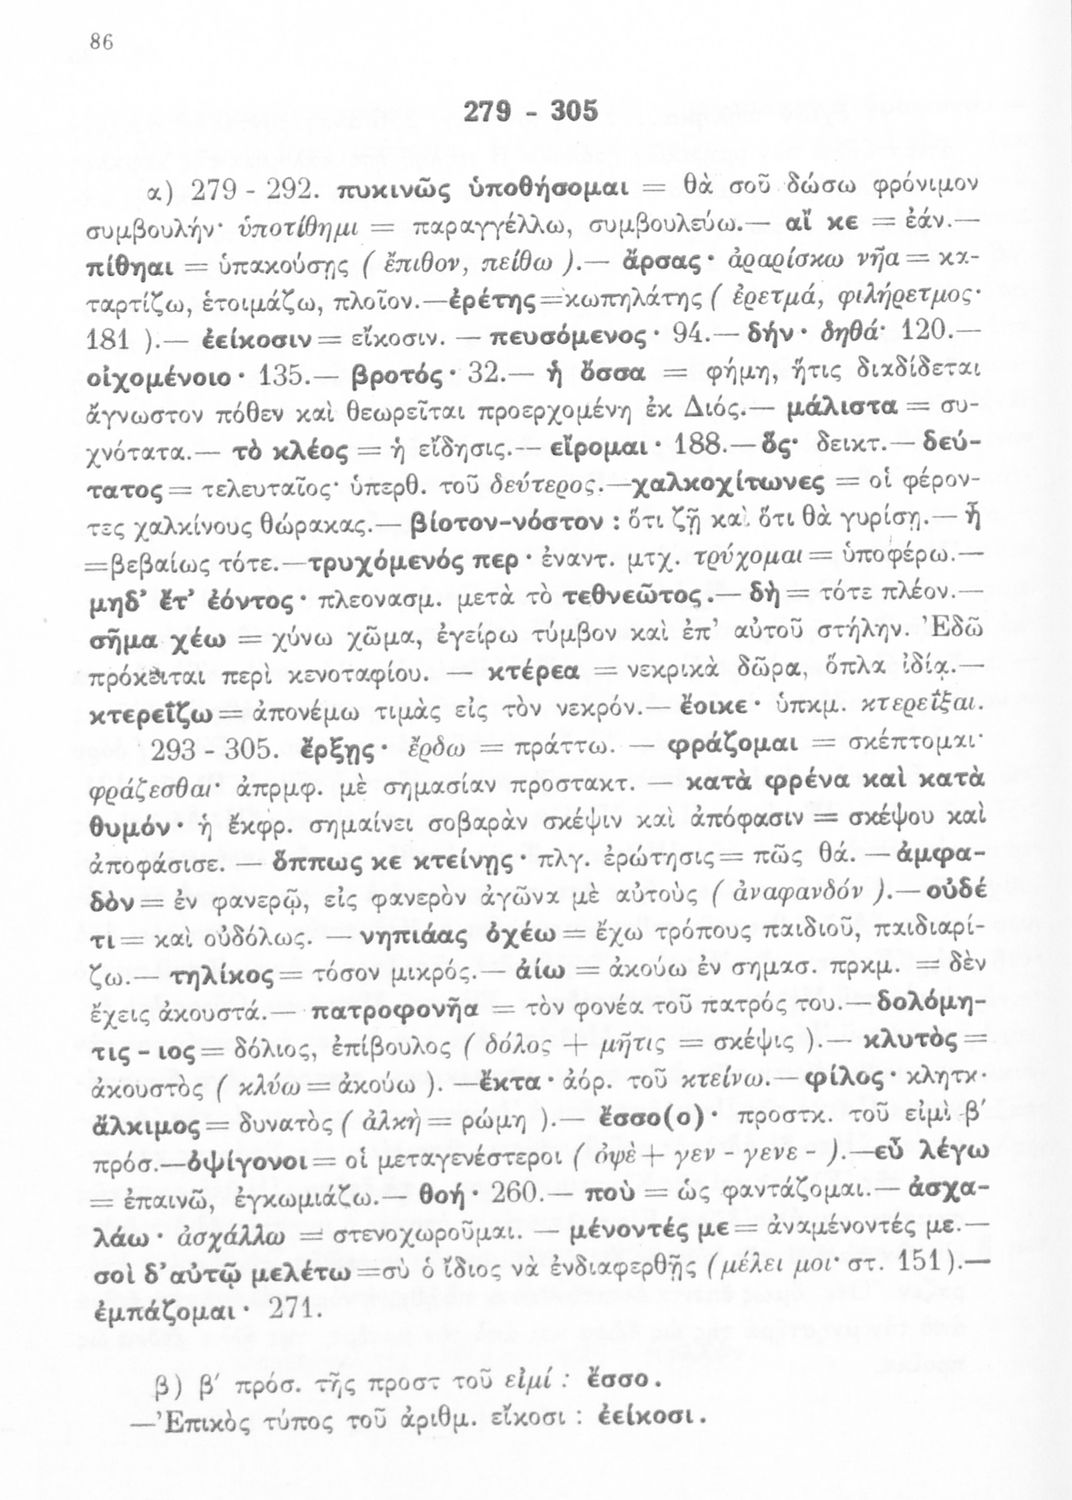 86
279 - 305
α) 279 - 292. πυκινῶς ὑποθήσομαι = θὰ σοῦ δώσω φρόνιμον
συμβουλήν· ὑποτίθημι = παραγγέλλω, συμβουλεύω.— αἴ κε = ἐάν.—
πίθηαι = ὑπακούσῃς ( ἔπιθον, πείθω ).— ἄρσας· ἀραρίσκω νῆα = κα-
ταρτίζω, ἑτοιμάζω, πλοῖον.—ἐρέτης=κωπηλάτης ( ἐρετμά, φιλήρετμος·
181 ).— ἐείκοσιν = εἴκοσιν. — πευσόμενος· 94.— δήν· δηθά· 120.—
οἰχομένοιο· 135.— βροτός· 32.— ἡ ὄσσα = φήμη, ἥτις διαδίδεται
ἄγνωστον πόθεν καὶ θεωρεῖται προερχομένη ἐκ Διός.— μάλιστα = συ-
χνότατα.— τὸ κλέος = ἡ εἴδησις.-- εἴρομαι· 188.—ὅς· δεικτ.— δεύ-
τατος = τελευταῖος· ὑπερθ. τοῦ δεύτερος.—χαλκοχίτωνες = οἱ φέρον-
τες χαλκίνους θώρακας.— βίοτον-νόστον : ὅτι ζῇ καὶ ὅτι θὰ γυρίσῃ.— ἦ
=βεβαίως τότε.—τρυχόμενός περ· ἐναντ. μτχ. τρύχομαι = ὑποφέρω.—
μηδ’ ἔτ’ ἐόντος· πλεονασμ. μετὰ τὸ τεθνεῶτος.— δὴ = τότε πλέον.—
σῆμα χέω = χύνω χῶμα, ἐγείρω τύμβον καὶ ἐπ’ αὐτοῦ στήλην. Ἐδῶ
πρόκειται περὶ κενοταφίου. — κτέρεα = νεκρικὰ δῶρα, ὅπλα ἰδίᾳ.—
κτερεΐζω = ἀπονέμω τιμὰς εἰς τὸν νεκρόν.— ἔοικε· ὑπκμ. κτερεΐξαι.
293 - 305. ἔρξῃς· ἔρδω = πράττω. — φράζομαι = σκέπτομαι·
φράζεσθαι· ἀπρμφ. μὲ σημασίαν προστακτ. — κατὰ φρένα καὶ κατὰ
θυμόν· ἡ ἔκφρ. σημαίνει σοβαρὰν σκέψιν καὶ ἀπόφασιν = σκέψου καὶ
ἀποφάσισε. — ὅππως κε κτείνῃς· πλγ. ἐρώτησις = πῶς θά. — ἀμφα-
δὸν = ἐν φανερῷ, εἰς φανερὸν ἀγῶνα μὲ αὐτοὺς ( ἀναφανδόν ).— οὐδέ
τι = καὶ οὐδόλως. — νηπιάας ὀχέω = ἔχω τρόπους παιδιοῦ, παιδιαρί-
ζω.— τηλίκος = τόσον μικρός.— ἀίω = ἀκούω ἐν σημασ. πρκμ. = δὲν
ἔχεις ἀκουστά.— πατροφονῆα = τὸν φονέα τοῦ πατρός του.— δολόμη-
τις - ιος = δόλιος, ἐπίβουλος ( δόλος + μῆτις = σκέψις ).— κλυτὸς =
ἀκουστὸς ( κλύω = ἀκούω ). —ἔκτα· ἀόρ. τοῦ κτείνω.— φίλος· κλητκ·
ἄλκιμος = δυνατὸς ( ἀλκὴ = ρώμη ).— ἔσσο(ο)· προστκ. τοῦ εἰμὶ β′
πρόσ.—ὀψίγονοι = οἱ μεταγενέστεροι ( ὀψὲ + γεν - γενε - ).—εὖ λέγω
= ἐπαινῶ, ἐγκωμιάζω.— θοή· 260.— ποὺ = ὡς φαντάζομαι.— ἀσχα-
λάω· ἀσχάλλω = στενοχωροῦμαι. — μένοντές με = ἀναμένοντές με.—
σοὶ δ’αὐτῷ μελέτω =σὺ ὁ ἴδιος νὰ ἐνδιαφερθῇς (μέλει μοι· στ. 151).—
ἐμπάζομαι· 271.
β) β′ πρόσ. τῆς προστ τοῦ εἰμί : ἔσσο.
—Ἐπικὸς τύπος τοῦ ἀριθμ. εἴκοσι : ἐείκοσι.